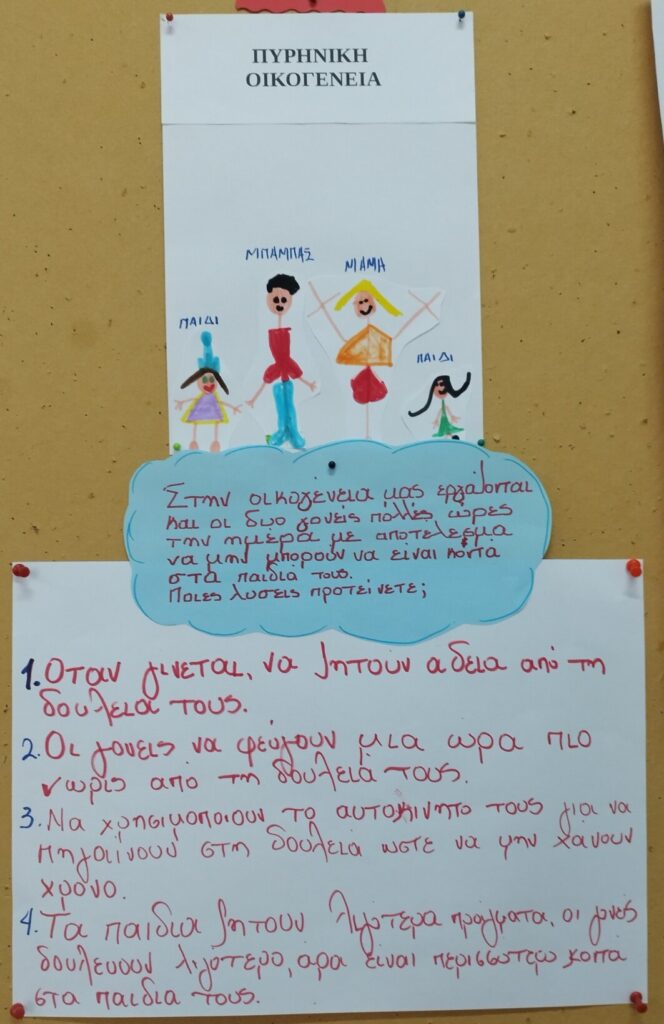 ΠΥΡΗΝΙΚΗ
ΟΙΚΟΓΕΝΕΙΑ
ΜΠΑΜΠΑΣ
ΜΑΜΑ
ΠΑΙΔΙ
ΠΑΙΔΙ
Στην οικογένεια μας εργάζονται
και οι δυο γονείς πολλές ώρες
την ημέρα με αποτέλεσμα
να μην μπορούν να είναι κοντά
στα παιδιά τους.
Ποιες λυσεις προτείνετε;
1. Όταν γίνεται, να ζητούν αδεια από τη
δουλεια τους.
2. Οι γονεις να φεύγουν μια ωρα πιο
νωρίς από τη δουλειά τους.
3. Να χρησιμοποιουν το αυτοκινητο τους για να
πηγαίνουν στη δουλεια ωστε να μην χάνουν
χρόνο.
4. Τα παιδια ζητουν λιγότερα πράγματα, οι γονείς
δουλευουν λιγότερο, αρα είναι περισσωτερο κοντά
στα παιδια τους.